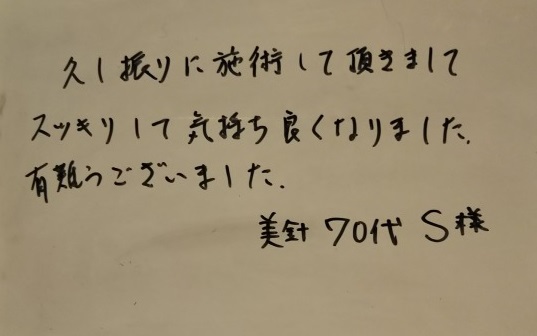 久し振りに施術して頂きまして
スッキりして気持ち良くなりました.
有難うございました.
美針 70代 S様